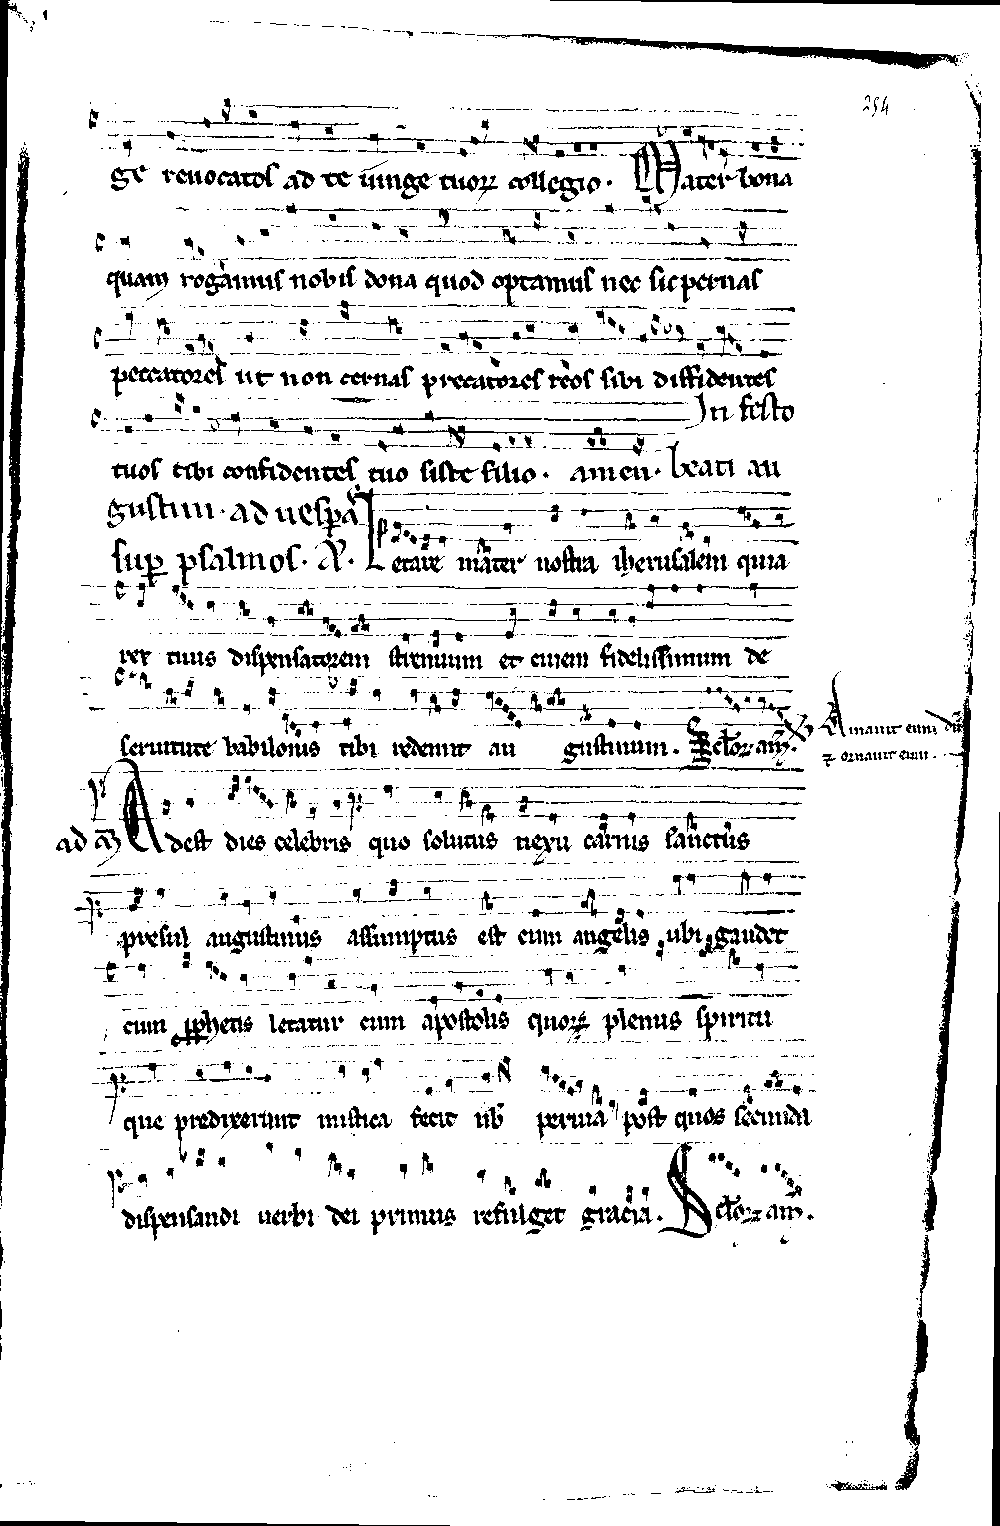 254
ge reuocatos ad te iunge tuorꝝ collegio. Mater bona
quam rogamus nobis dona quod optamus nec sic spernas
peccatores ut non cernas precatores reos sibi diffidentes
In festo
tuos tibi confidentes tuo siste filio. amen. beati au
gustini. ad uesꝑas
suꝑ psalmos. A. Letare mater nostra iherusalem quia
rex tuus dispensatorem strenuum et ciuem fidelissimum de
seruitute babilonis tibi redemit au gustinum. Seclorꝝ am̄.
Amauit eum dn̄s
⁊ ornauit eum.
ad
Adest dies celebris quo solutus nexu carnis sanctus
presul augustinus assumptus est cum angelis ubi gaudet
cum ꝓphetis letatur cum apostolis quorꝝ plenus spiritu
que predixerunt mistica fecit nb̄ peruia post quos secunda
dispensandi uerbi dei primus refulget gracia. Sclorꝝ am̄.